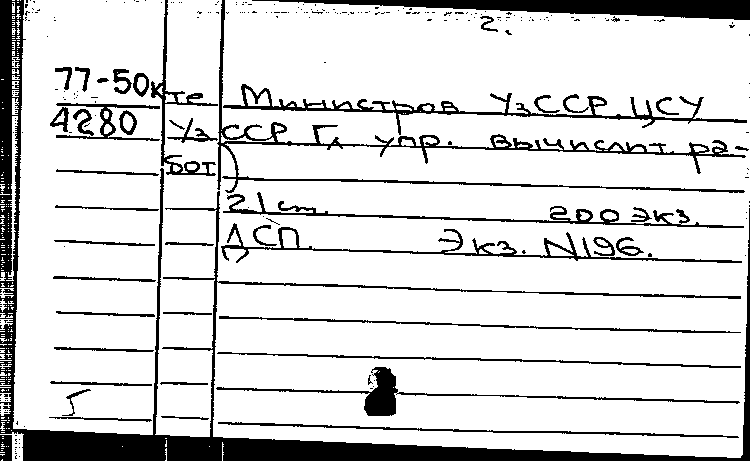 2.
77-50кте Министров УзССР. ЦСУ
4280 УзССР. Гл упр. вычислит. ра-
бот)
21 cm. 200 экз.
ДСП. Экз. N196.
5